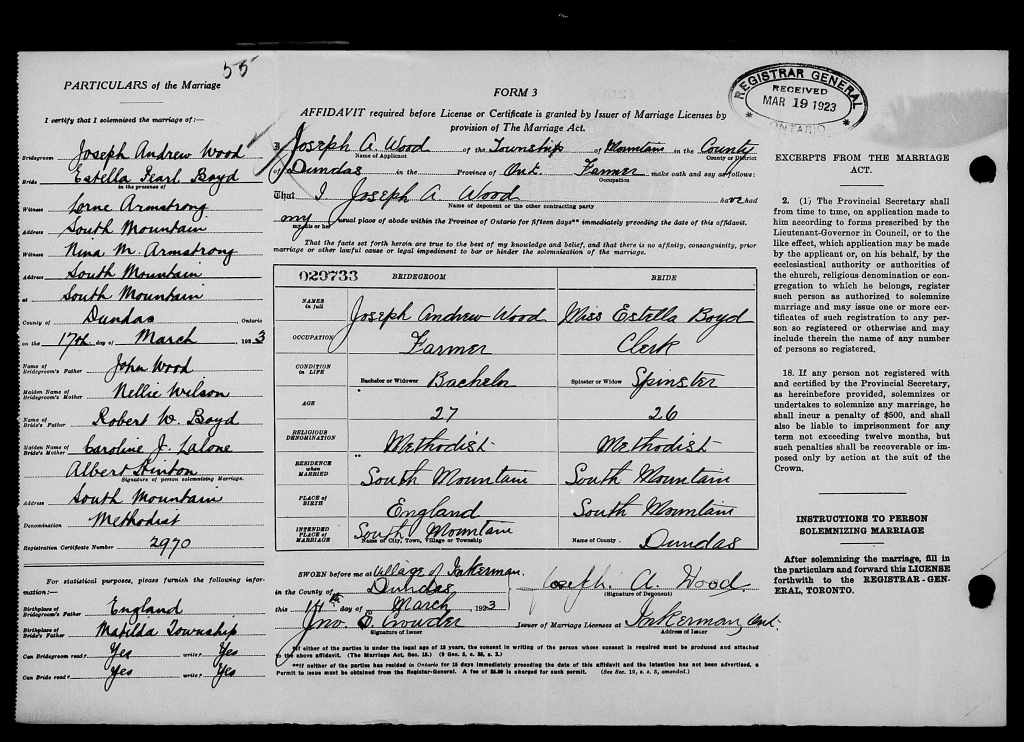 55
PARTICULARS of the Marriage
I certify that I solemnized the marriage of:—
Bridegroom Joseph Andrew Wood
Bride Estella Pearl Boyd
in the presence of
Witness Lorne Armstrong
Address South Mountain
Witness Nina M. Armstrong
Address South Mountain
at South Mountain
County of Dundas Ontario
on the 17th day of March 1923
Name of Bridegroom's Father John Wood
Maiden Name of Bridegroom's Mother Nellie Wilson
Name of Bride's Father Robert W. Boyd
Maiden Name of Bride's Mother Caroline J. Lalone
Albert Hinton
Signature of person solemnizing Marriage.
Address South Mountain
Denomination Methodist
Registration Certificate Number 2970
For statistical purposes, please furnish the following information:—
Birthplace of Bridegroom's Father England
Birthplace of Bride's Father Matilda Township
Can Bridegroom read? Yes write? Yes
Can Bride read? Yes write? Yes
FORM 3
AFFIDAVIT required before License or Certificate is granted by Issuer of Marriage Licenses by
provision of The Marriage Act.
I Joseph A. Wood of the Township of Mountain in the County
Name of Applicant County or District
of Dundas in the Province of Ont. Farmer make oath and say as follows:
Occupation
That I Joseph A. Wood have had
Name of deponent or the other contracting party
my usual place of abode within the Province of Ontario for fifteen days** immediately preceding the date of this affidavit.
my, his or her
That the facts set forth herein are true to the best of my knowledge and belief, and that there is no affinity, consanguinity, prior
marriage or other lawful cause or legal impediment to bar or hinder the solemnization of the marriage.
029733 BRIDEGROOM BRIDE
NAMES in full Joseph Andrew Wood Miss Estella Boyd
OCCUPATION Farmer Clerk
CONDITION in LIFE Bachelor or Widower Bachelor Spinster or Widow Spinster
AGE 27 26
RELIGIOUS DENOMINATION Methodist Methodist
RESIDENCE when MARRIED South Mountain South Mountain
PLACE OF BIRTH England South Mountain
INTENDED PLACE OF MARRIAGE South Mountain Name of City, Town, Village or Township Name of County Dundas
SWORN before me at Village of Inkerman.
in the County of Dundas Joseph. A. Wood
(Signature of Deponent)
this day of March 1923
Jno. S. Crowder Issuer of Marriage Licenses at Inkerman, Ont.
Signature of Issuer Address of Issuer
*If either of the parties is under the legal age of 18 years, the consent in writing of the person whose consent is required must be produced and attached
to the above affidavit. (The Marriage Act, Sec. 15.)
**If neither of the parties has resided in Ontario for 15 days immediately preceding the date of this affidavit and the intention has not been advertised, a
Permit to issue must be obtained from the Registrar-General. A fee of $5.00 is charged for such permit. (See Sec. 19, s. s. 5, amended.)
REGISTRAR GENERAL
RECEIVED
MAR 19 1923
ONTARIO
EXCERPTS FROM THE MARRIAGE
ACT.
2. (1) The Provincial Secretary shall
from time to time, on application made to
him according to forms prescribed by the
Lieutenant-Governor in Council, or to the
like effect, which application may be made
by the applicant or, on his behalf, by the
ecclesiastical authority or authorities of
the church, religious denomination or con-
gregation to which he belongs, register
such person as authorized to solemnize
marriage and may issue one or more cer-
tificates of such registration to any per-
son so registered or otherwise and may
include therein the name of any number
of persons so registered.
18. If any person not registered with
and certified by the Provincial Secretary,
as hereinbefore provided, solemnizes or
undertakes to solemnize any marriage, he
shall incur a penalty of $500, and shall
also be liable to imprisonment for any
term not exceeding twelve months, but
such penalties shall be recoverable or im-
posed only by action at the suit of the
Crown.
INSTRUCTIONS TO PERSON
SOLEMNIZING MARRIAGE
After solemnizing the marriage, fill in
the particulars and forward this LICENSE
forthwith to the REGISTRAR-GEN-
ERAL, TORONTO.